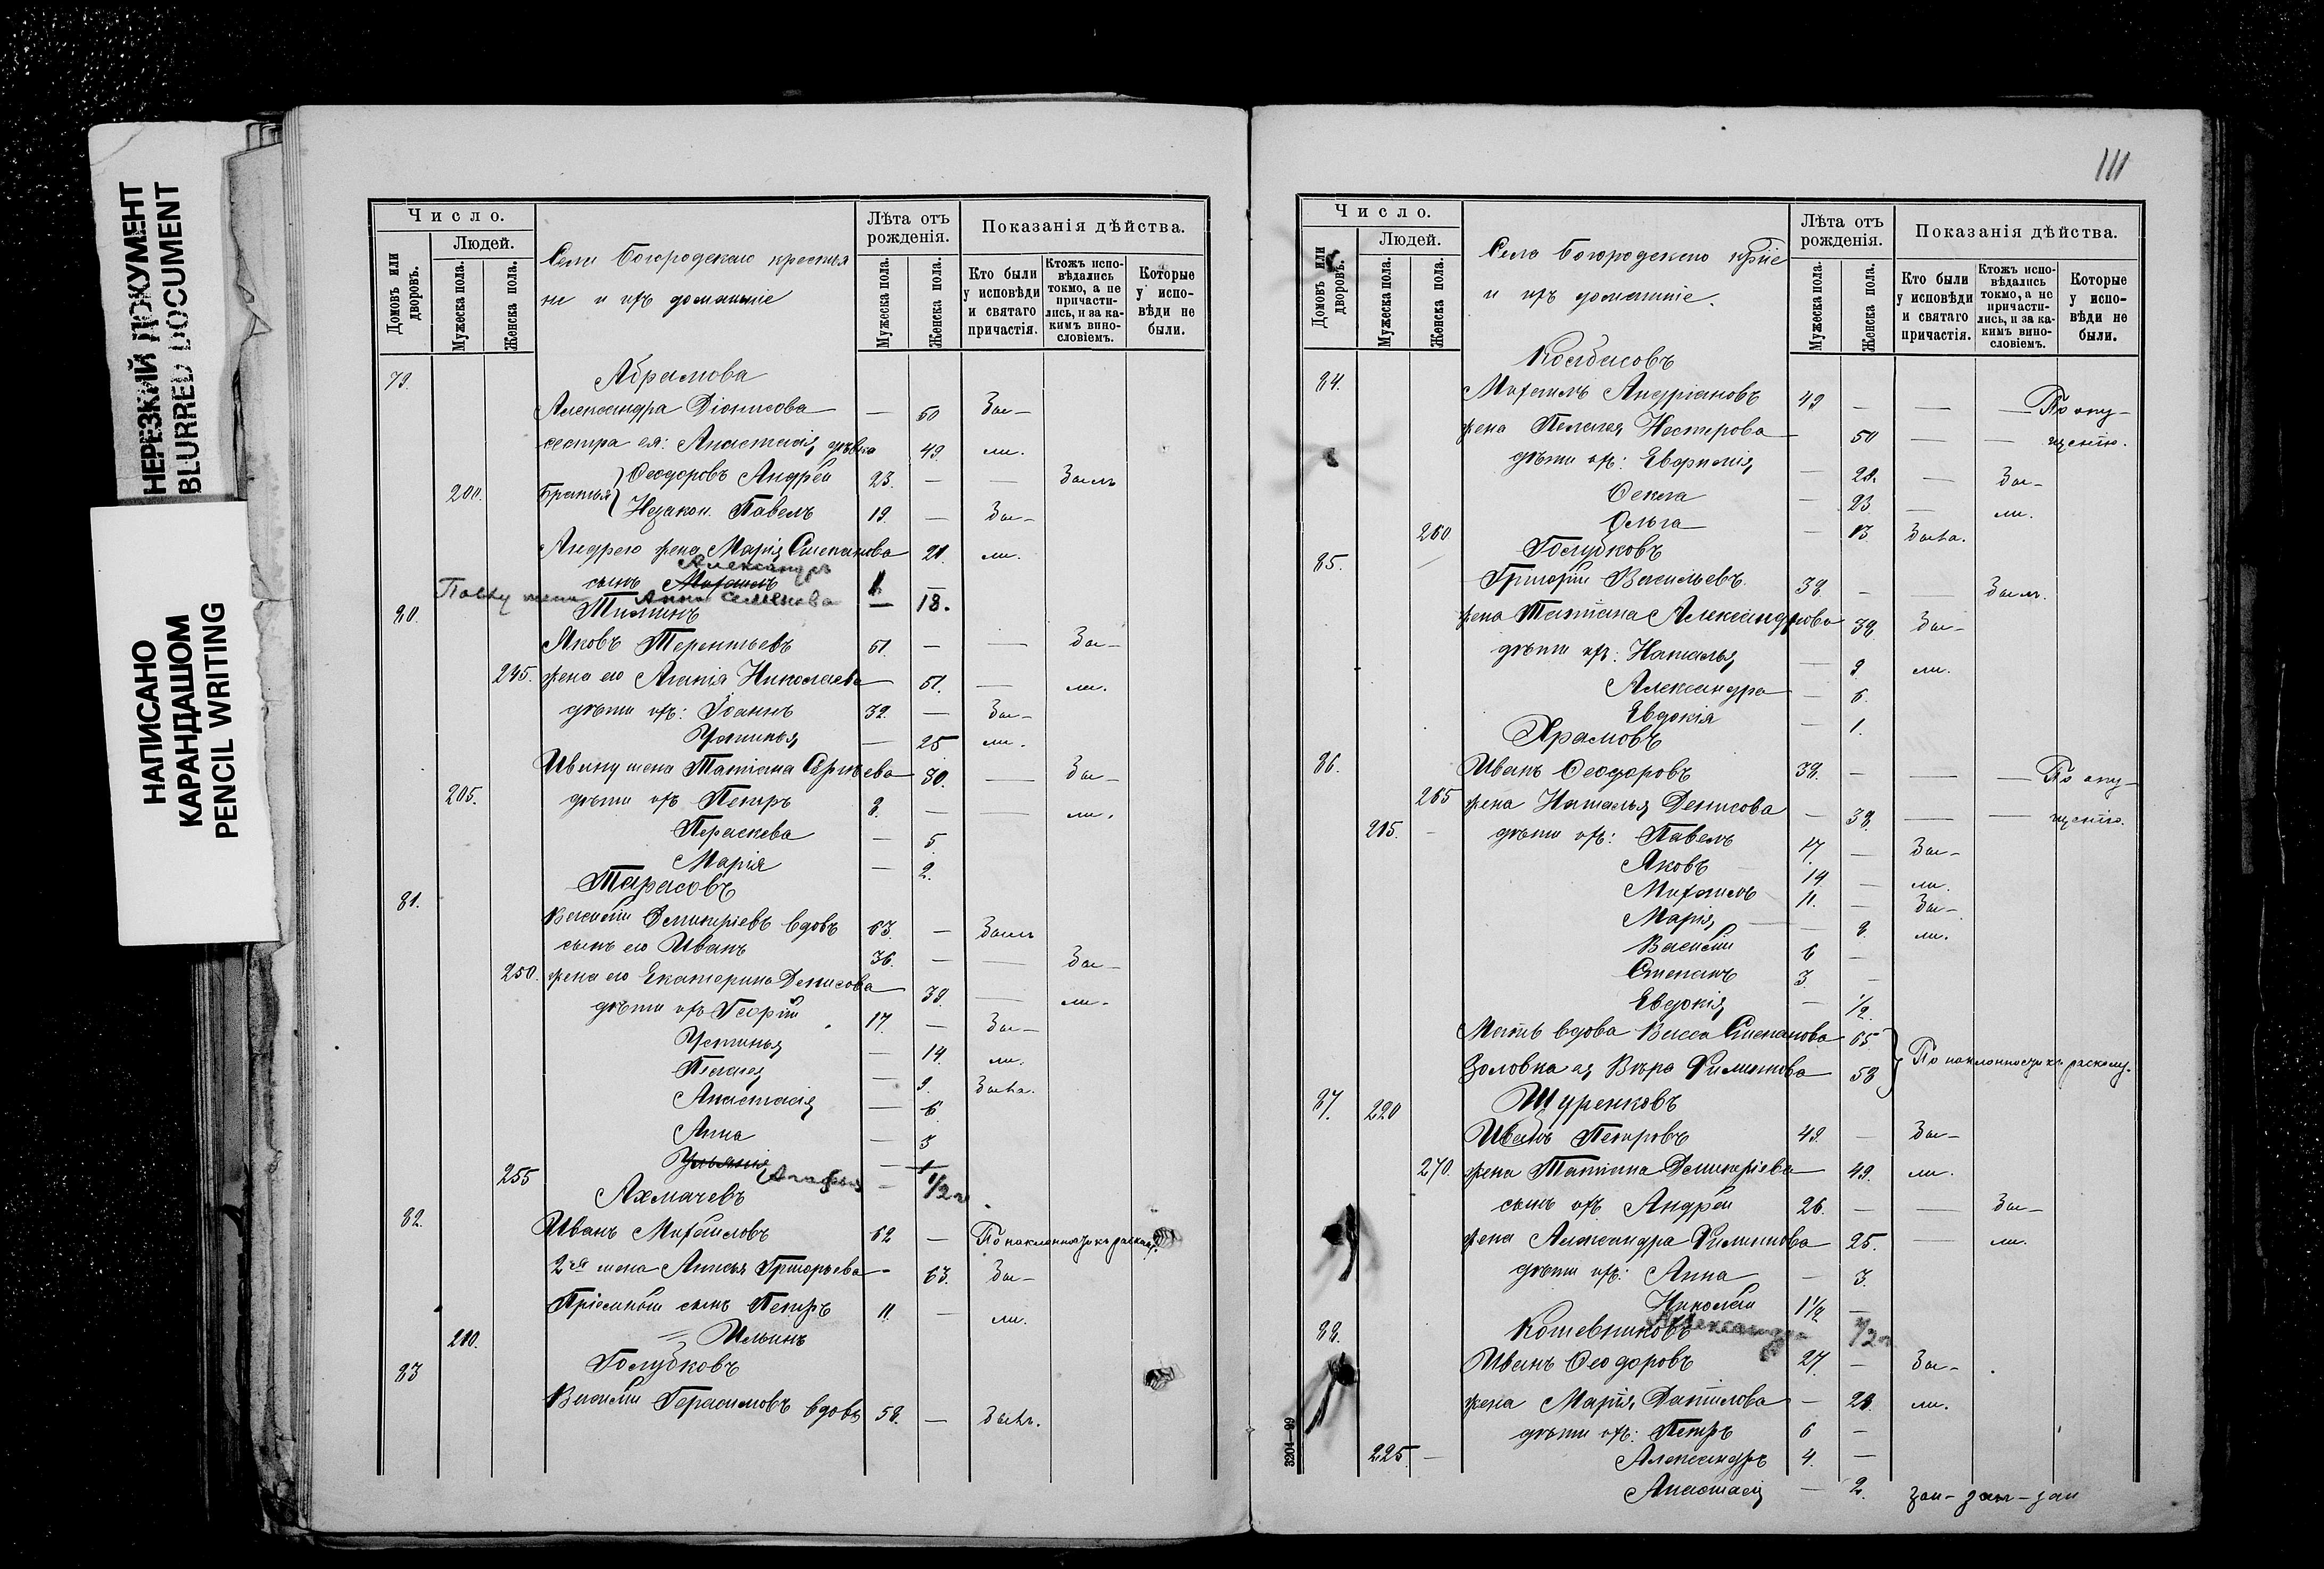 НЕРЕЗКИЙ ДОКУМЕНТ
BLURRED DOCUMENT
НАПИСАНО
КАРАНДАШОМ
PENCIL WRITING
Число.
Домовъ или дворовъ.
Людей.
Мужеска пола.
Женска пола.
Села Богородскаго крестья
не и ихъ домашніе
Лѣта отъ рожденія.
Мужеска пола.
Женска пола.
Показанія дѣйства.
Кто были у исповѣди и святаго причастія.
Ктожъ испо-
вѣдались
токмо, а не
причасти-
лись, и за ка-
кимъ вино-
словіемъ.
Которые у испо-
вѣди не были.
79. Абрамова
Александра Діонисова — 60 Бы—
сестра ея: Анастасія дѣвка 49. ли.
Ѳеодоровъ Андрей 23. — — Былъ
200. Братья Незакон. Павелъ 19. — Бы—
Андрею жена Марія Степанова 21. ли.
Александръ
сынъ Михаилъ 1. —
Павлу жена Анна Семенова — 18.
80. Тиминъ
Яковъ Терентьевъ 61. — — Бы—
245. жена его Агапія Николаева 61. — ли.
дѣти ихъ: Іоаннъ 32. — Бы—
Устинья — 25 ли.
Ивану жена Татіана Сергѣева 30. — Бы—
205. дѣти ихъ Петръ 8. — — ли.
Параскева — 5
Марія — 2.
81. Тарасовъ
Василій Димитріевъ вдовъ 63. — Былъ
сынъ его Иванъ 36. — — Бы—
250. жена его Екатерина Денисова 39. — ли.
дѣти ихъ Георгій 17. — Бы—
Устинья — 14. ли.
Пелагея — 9. Была.
Анастасія — 6.
Анна — 3
255 Агафья — 1/2 г.
82. Ахмачевъ
Иванъ Михайловъ 62 — По наклонности къ расколу.
2ая жена Анисья Григорьева — 63. Бы—
Пріемный сынъ Петръ 11. — ли.
210. Ильинъ
83 Голубковъ
Василій Герасимовъ вдовъ 58. — Былъ.
111
Число.
Домовъ или дворовъ.
Людей.
Мужеска пола.
Женска пола.
Села Богородскаго крśне
и ихъ домашніе.
Лѣта отъ рожденія.
Мужеска пола.
Женска пола.
Показанія дѣйства.
Кто были у исповѣди и святаго причастія.
Ктожъ испо-
вѣдались
токмо, а не
причасти-
лись, и за ка-
кимъ вино-
словіемъ.
Которые у испо-
вѣди не были.
84. Колбасовъ
Михаилъ Андріановъ 49 — — — По опу—
жена Пелагея Нестерова — 50 — — щенію.
дѣти ихъ: Евфимія — 28. — Бы—
Ѳекла — 23 — ли.
260 Ольга — 13. Была.
85. Голубковъ
Григорій Васильевъ 38. — — Былъ.
жена Татіана Александрова 38. Бы—
дѣти ихъ: Наталья — 9. ли.
Александра — 6.
Евдокія — 1.
86. Храмовъ
Иванъ Ѳеодоровъ 38. — — — По опу—
265 жена Наталья Денисова — 38. — — щенію.
215. — дѣти ихъ: Павелъ 17. — Бы—
Яковъ 14. — ли.
Михаилъ 11. — Бы—
Марія — 8. ли.
Василій 6 —
Степанъ 3. —
Евдокія — 1/2.
Мать вдова Васса Степанова 65
Золовка ея Вѣра Филиппова 58 По наклонности къ расколу.
87. 220 Шуренковъ
Иванъ Петровъ 49. — Бы—
270. жена Татіана Димитріева 49. ли.
сынъ ихъ Андрей 26. — — Бы—
жена Александра Филиппова 25. — ли.
дѣти ихъ: Анна — 3.
Николай 1 1/2 —
Александра 1/2 г.
88. Кошевниковъ
Иванъ Ѳеодоровъ 27. — Бы—
жена Марія Данилова — 28. ли.
дѣти ихъ: Петръ 6 —
225 — Александръ 4. —
Анастасія — 2.
3204—99